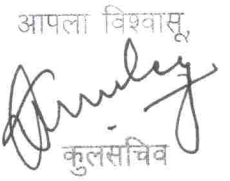 आपला विश्वासू,
कुलसचिव